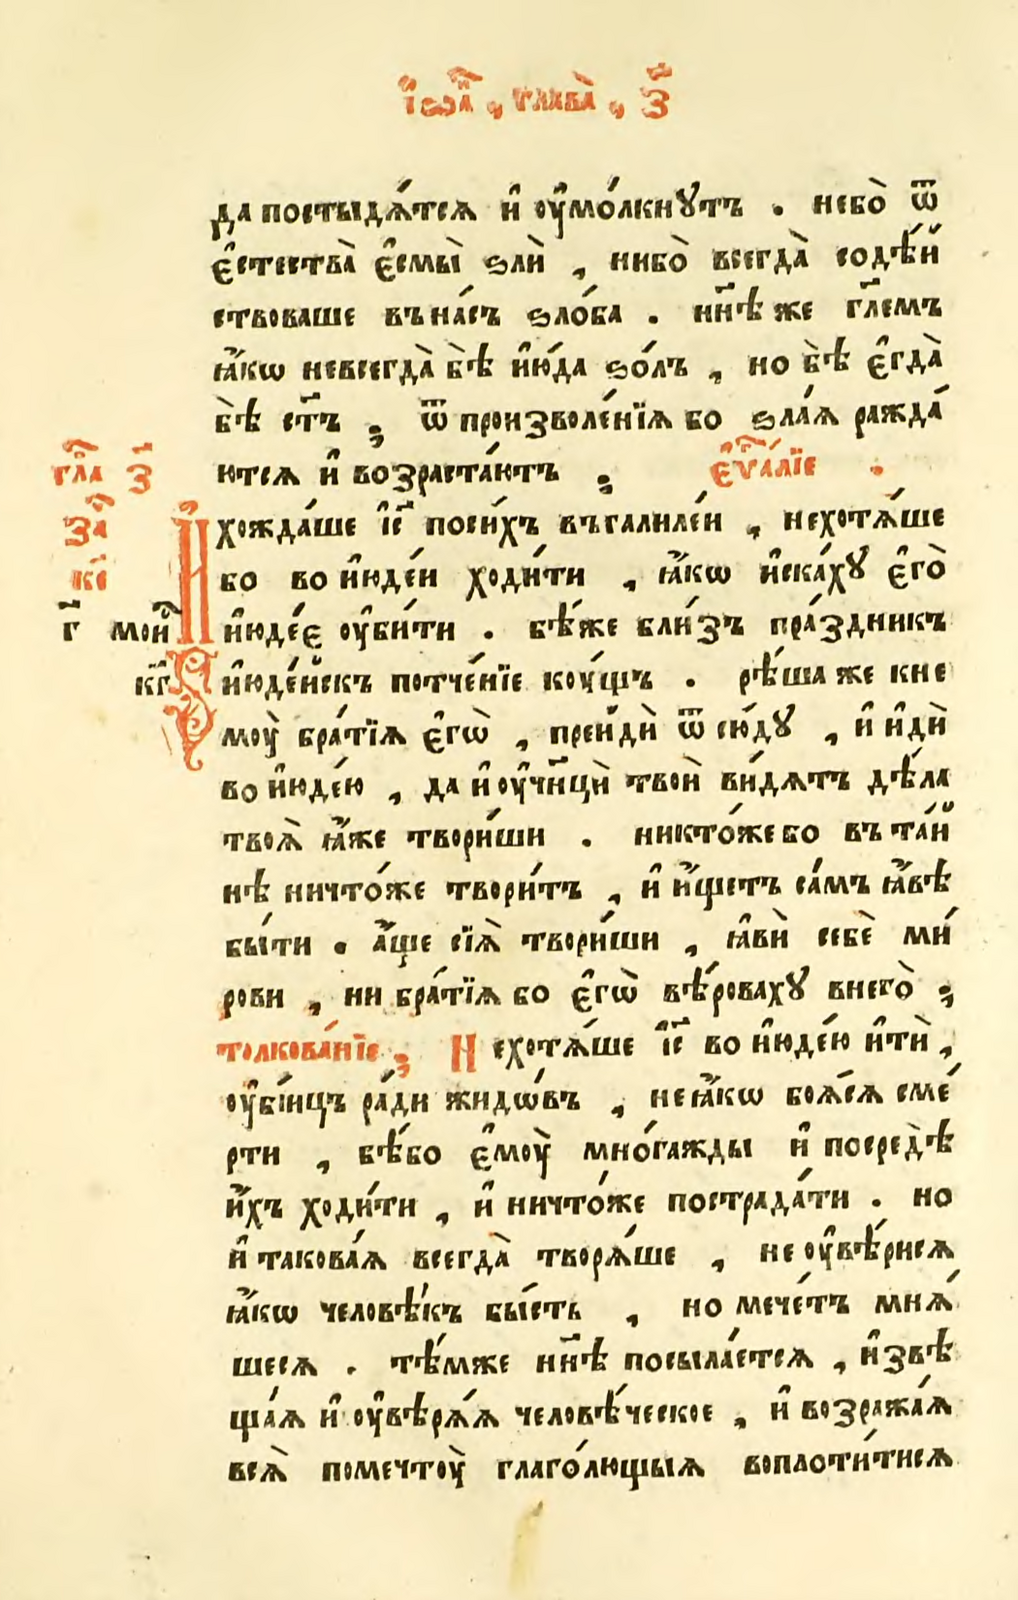 І҆ѡа҃ , глава̀ , з҃
да постыдѧ́тсѧ и҆ оу҆мо́лкнꙋтъ . небо̀ ѿ
є҆стества̀ є҆смы̀ ѕлѝ , нибо̀ всегда̀ содѣ́й
ствоваше въ на́съ ѕло́ба . нн҃ѣ же гл҃емъ
ꙗ҆́кѡ невсегда̀ бѣ̀ и҆ю́да ѕо́лъ , но бѣ̀ є҆гда̀
бѣ̀ ст҃ъ ; ѿ произволе́нїѧ бо ѕла́ѧ ражда́
ютсѧ и҆ возраста́ютъ ; є҆ѵⷢ҇а́лїе .
гла̀ з҃
И҆ хожда́ше і҆с҃ поси́хъ въгалиле́и , нехотѧ́ше
за҃
бо во и҆юде́и ходи́ти , ꙗ҆́кѡ и҆ска́хꙋ є҆го̀
к҃е
и҆юде́є оу҆би́ти . бѣ́же бли́зъ пра́здникъ
г҃ мой
и҆юде́йскъ потче́нїе коу́щъ . рѣ́ша же кне
к҃г
моу̀ бра́тїѧ є҆гѡ̀ , прейдѝ ѿ сю́дꙋ , и҆ и҆дѝ
во и҆юде́ю , да и҆ оу҆чн҃цѝ твоѝ ви́дѧтъ дѣ́ла
твоѧ̀ ꙗ҆́же твори́ши . никто́же бо въ та́й
нѣ ничто́же твори́тъ , и҆ и҆́щетъ са́мъ ꙗ҆́вѣ
бы́ти . а҆́ще сїѧ̀ твори́ши , ꙗ҆вѝ себѐ ми́
рови , ни бра́тїѧ бо є҆гѡ̀ вѣ́ровахꙋ внего̀ ;
толкова́нїе ; Н ехотѧ́ше і҆с҃ во и҆юде́ю и҆тѝ ,
оу҆бі́ицъ ра́ди жидѡ́въ , не ꙗ҆́кѡ боѧ́сѧ сме́
рти , бѣ́бо є҆моу̀ мно́гажды и҆ посредѣ̀
и҆́хъ ходи́ти , и҆ ничто́же пострада́ти . но
и҆ такова́ѧ всегда̀ творѧ́ше , не оу҆вѣ́рисѧ
ꙗ҆́кѡ человѣ́къ бы́сть , но мече́тъ мнѧ́
шесѧ . тѣ́мже нн҃ѣ посыла́етсѧ , и҆звѣ
ща́ѧ и҆ оу҆вѣрѧ́ѧ человѣ́ческое , и҆ возража́ѧ
всѧ̀ помечтоу̀ глаго́лющыѧ воплоти́тисѧ